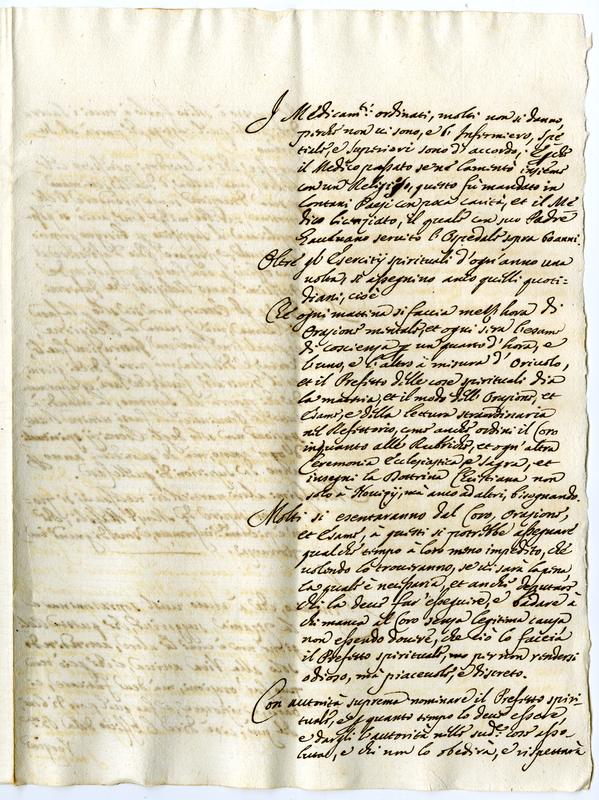 I Medicam.ti ordinati, molti non si danno,
perche non vi sono, e l'Infermiero, spe
tiale, e superiori sono d'accordo;
il Medico passato se ne lamentò insieme
con un Religioso, questo fù mandato in
lontani Paesi con poca carità, et il Me
dico licenziato, il quale con suo Padre
havevano servito l'Ospedale sopra 60 anni.
Oltre gl'Esercitij spirituali d'ogn'anno una
volta, si assegnino anco quelli quoti=
diani, cioè
Che ogni mattina si faccia mezz'hora di
Orazione mentale, et ogni sera l'esame
di coscienza p un quarto d'hora, e
l'uno, e l'altro à misura d'Oriolo,
et il Prefetto delle cose spirituali dia
la materia, et il modo dell'Orazione, et
Esame, e della lettura straordinaria
nel Refettorio, come anche ordini il Coro
inquanto alle Rubriche, et ogn'altra
Ceremonia Ecclesiastica, e sagra, et
insegni la Dottrina Cristiana non
solo à Novizij, mà anco ad altri, bisognando.
Molti si esentaranno dal Coro, Orazione,
et Esame, a questi si potrebbe assegnare
qualche tempo à loro meno impedito, che
volendo lo troveranno, se vi sarà la pena,
la quale è necessaria, et anche deputare
chi la deve far'esseguire, e badare à
chi manca al Coro senza legitima causa
non essendo dovere, che ciò lo faccia
il Prefetto spirituale, ma per non rendersi
odioso, mà piacevole, e discreto.
Con autorità suprema nominare il Prefetto spiri-
tuale, e p quanto tempo lo deve essere,
e dargli l'autorità nelle sud.e cose asso-
luta, e chi non lo obedirà, e rispettarà